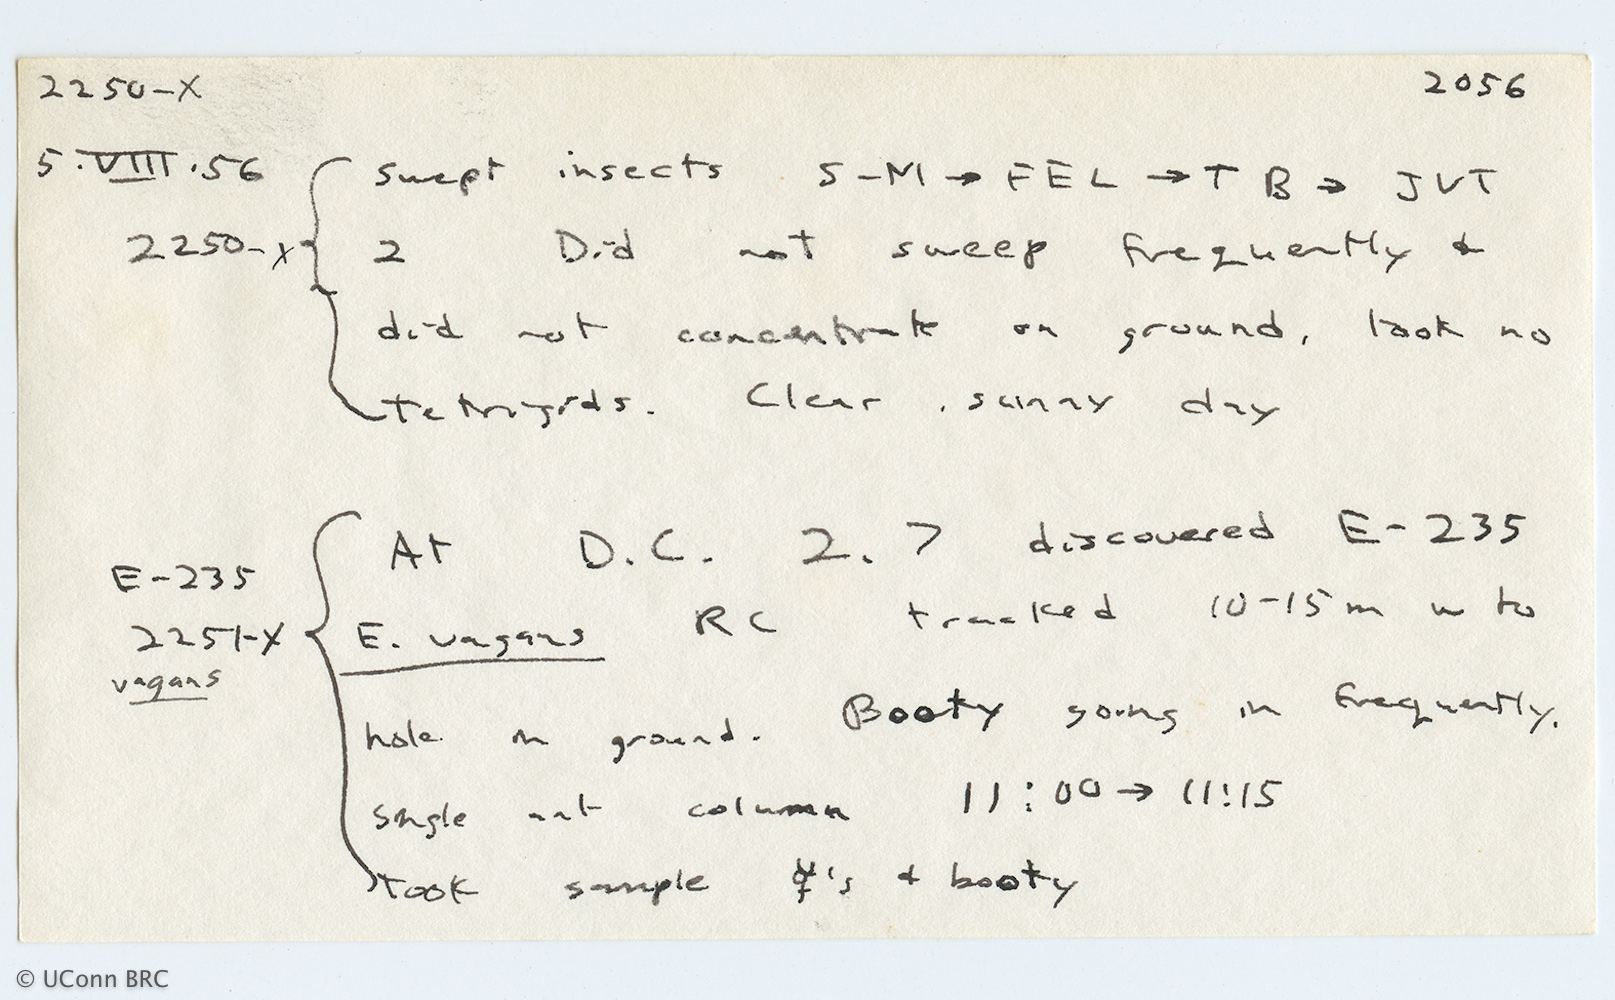 2250-X 2056
5.VIII.56 swept insects S-M → FEL → T B → JVT
2250-X 2 Did not sweep frequently &
did not concentrate on ground, took no
tetrigids. Clear, sunny day
At D.C. 2.7 discovered E-235
E-235
2251-X E. vagans RC tracked 10-15m w to
vagans
hole in ground. Booty going in frequently.
Single ant column 11:00 → 11:15
Took sample ☿'s & booty
© UConn BRC